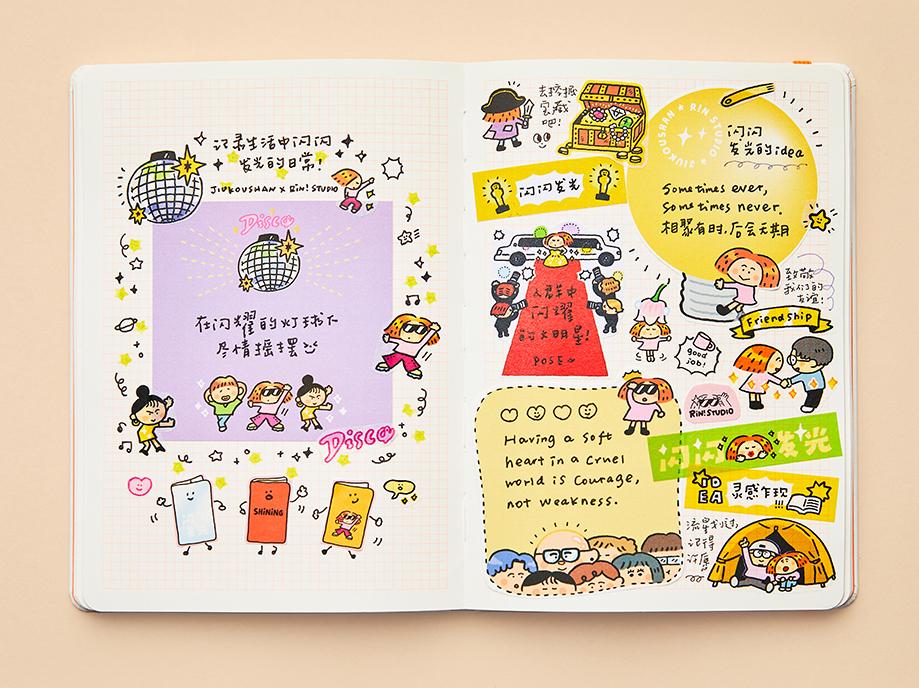 记录生活中闪闪
发光的日常!
JIUKOUSHAN X RiN! STUDIO
Disco
在闪耀的灯球下
尽情摇摆
Disco
SHiNiNG
去挖掘
宝藏
吧!
闪闪发光
人群中
闪耀
的大明星!
POSE
RIN STUDIO ★ JIUKOUSHAN ★
闪闪
发光的idea
Sometimes ever,
Sometimes never.
相聚有时,后会无期
致敬
我们的
友谊!
Friendship
good
job!
RiN! STUDIO
Having a soft
heart in a cruel
world is courage,
not weakness.
闪闪发光
IDEA
灵感乍现!!!
流星划过,
记得
许愿